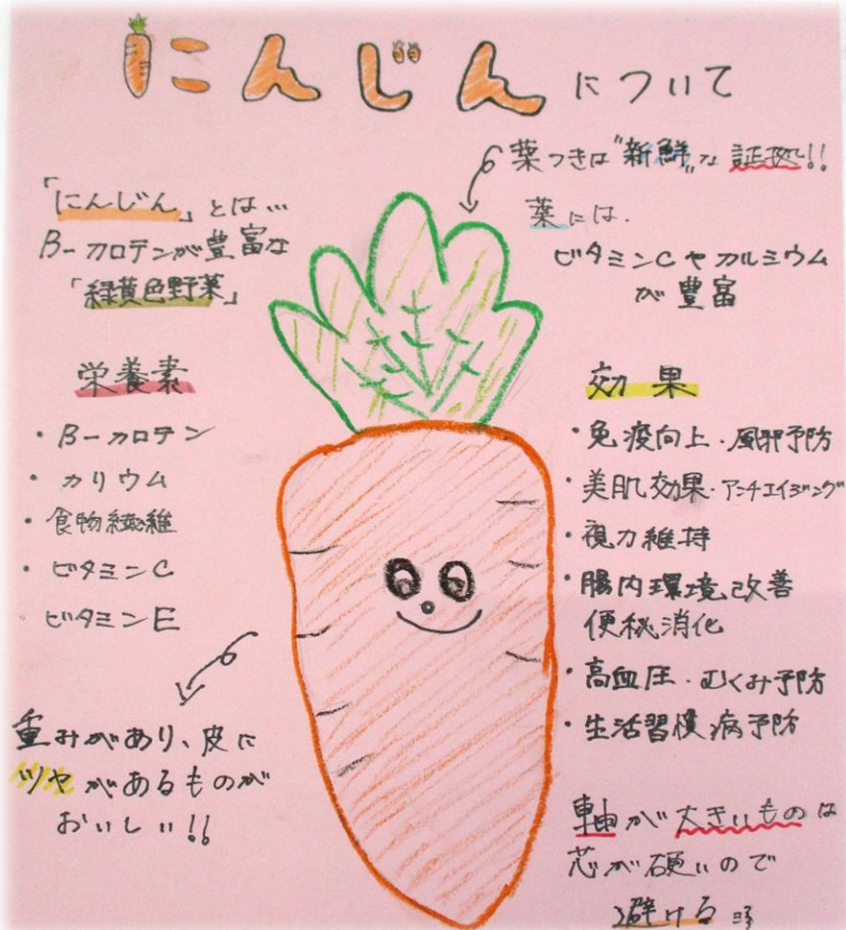 にんじんについて
葉つきは"新鮮"な証拠!!
葉には、
ビタミンCやカルミウム
が豊富
「にんじん」とは…
β-カロテンが豊富な
「緑黄色野菜」
栄養素
・β-カロテン
・カリウム
・食物繊維
・ビタミンC
・ビタミンE
重みがあり、皮に
ツヤがあるものが
おいしい!!
効果
・免疫向上・風邪予防
・美肌効果・アンチエイジング
・視力維持
・腸内環境改善
便秘消化
・高血圧・むくみ予防
・生活習慣病予防
軸が大きいものは
芯が硬いので
避ける